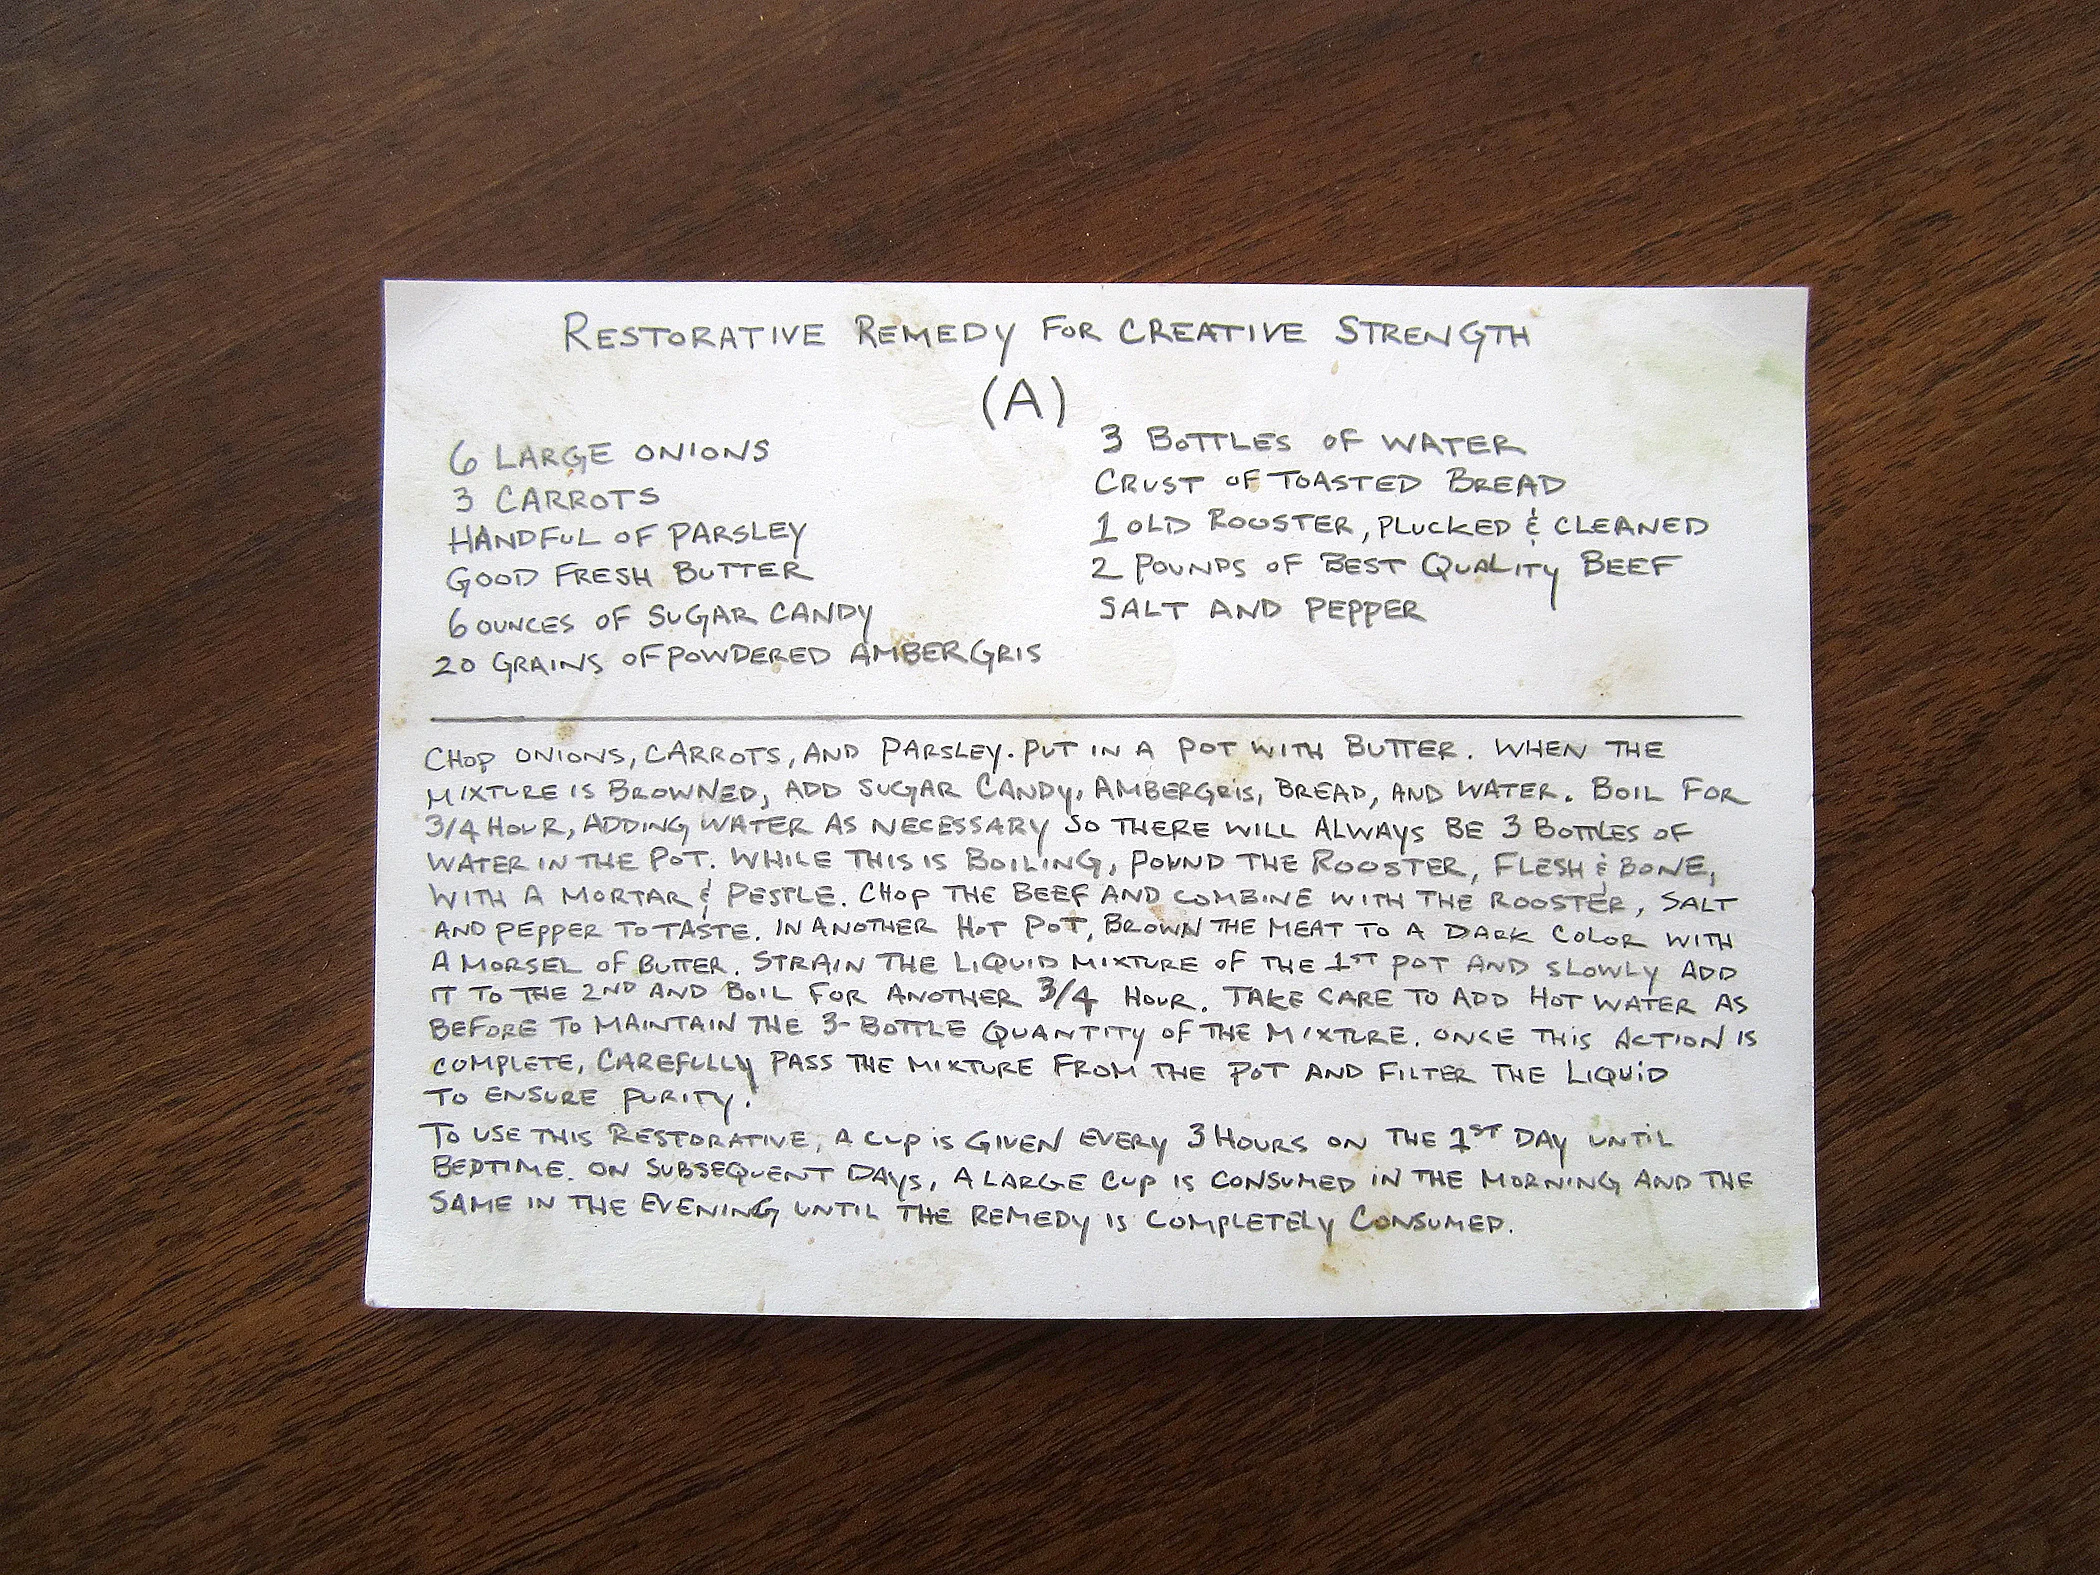 RESTORATIVE REMEDY FOR CREATIVE STRENGTH
(A)
6 LARGE ONIONS
3 CARROTS
HANDFUL OF PARSLEY
GOOD FRESH BUTTER
6 OUNCES OF SUGAR CANDY
20 GRAINS OF POWDERED AMBERGRIS
3 BOTTLES OF WATER
CRUST OF TOASTED BREAD
1 OLD ROOSTER, PLUCKED & CLEANED
2 POUNDS OF BEST QUALITY BEEF
SALT AND PEPPER
CHOP ONIONS, CARROTS, AND PARSLEY. PUT IN A POT WITH BUTTER. WHEN THE
MIXTURE IS BROWNED, ADD SUGAR CANDY, AMBERGRIS, BREAD, AND WATER. BOIL FOR
3/4 HOUR, ADDING WATER AS NECESSARY SO THERE WILL ALWAYS BE 3 BOTTLES OF
WATER IN THE POT. WHILE THIS IS BOILING, POUND THE ROOSTER, FLESH & BONE,
WITH A MORTAR & PESTLE. CHOP THE BEEF AND COMBINE WITH THE ROOSTER, SALT
AND PEPPER TO TASTE. IN ANOTHER HOT POT, BROWN THE MEAT TO A DARK COLOR WITH
A MORSEL OF BUTTER. STRAIN THE LIQUID MIXTURE OF THE 1ST POT AND SLOWLY ADD
IT TO THE 2ND AND BOIL FOR ANOTHER 3/4 HOUR. TAKE CARE TO ADD HOT WATER AS
BEFORE TO MAINTAIN THE 3-BOTTLE QUANTITY OF THE MIXTURE. ONCE THIS ACTION IS
COMPLETE, CAREFULLY PASS THE MIXTURE FROM THE POT AND FILTER THE LIQUID
TO ENSURE PURITY.
TO USE THIS RESTORATIVE, A CUP IS GIVEN EVERY 3 HOURS ON THE 1ST DAY UNTIL
BEDTIME. ON SUBSEQUENT DAYS, A LARGE CUP IS CONSUMED IN THE MORNING AND THE
SAME IN THE EVENING UNTIL THE REMEDY IS COMPLETELY CONSUMED.